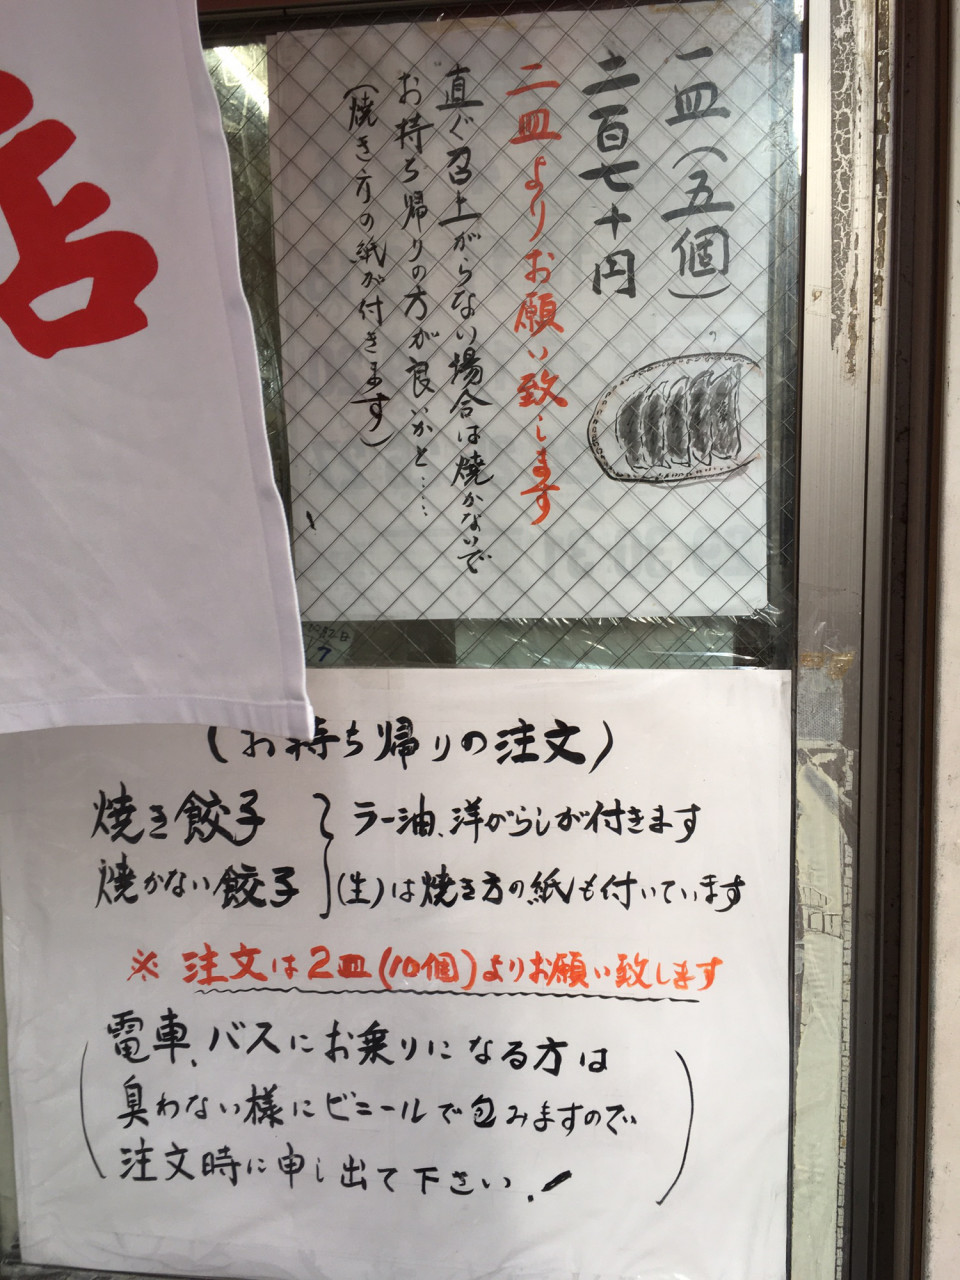 店
一皿(五個)
二百七十円
二皿よりお願い致します
直ぐ召上がらない場合は焼かないで
お持ち帰りの方が良いかと……
(焼き方の紙が付きます)
(お持ち帰りの注文)
焼き餃子 ラー油、洋がらしが付きます
焼かない餃子 (生)は焼き方の紙も付いています
※ 注文は2皿(10個)よりお願い致します
電車、バスにお乗りになる方は
臭わない様にビニールで包みますので
注文時に申し出て下さい!